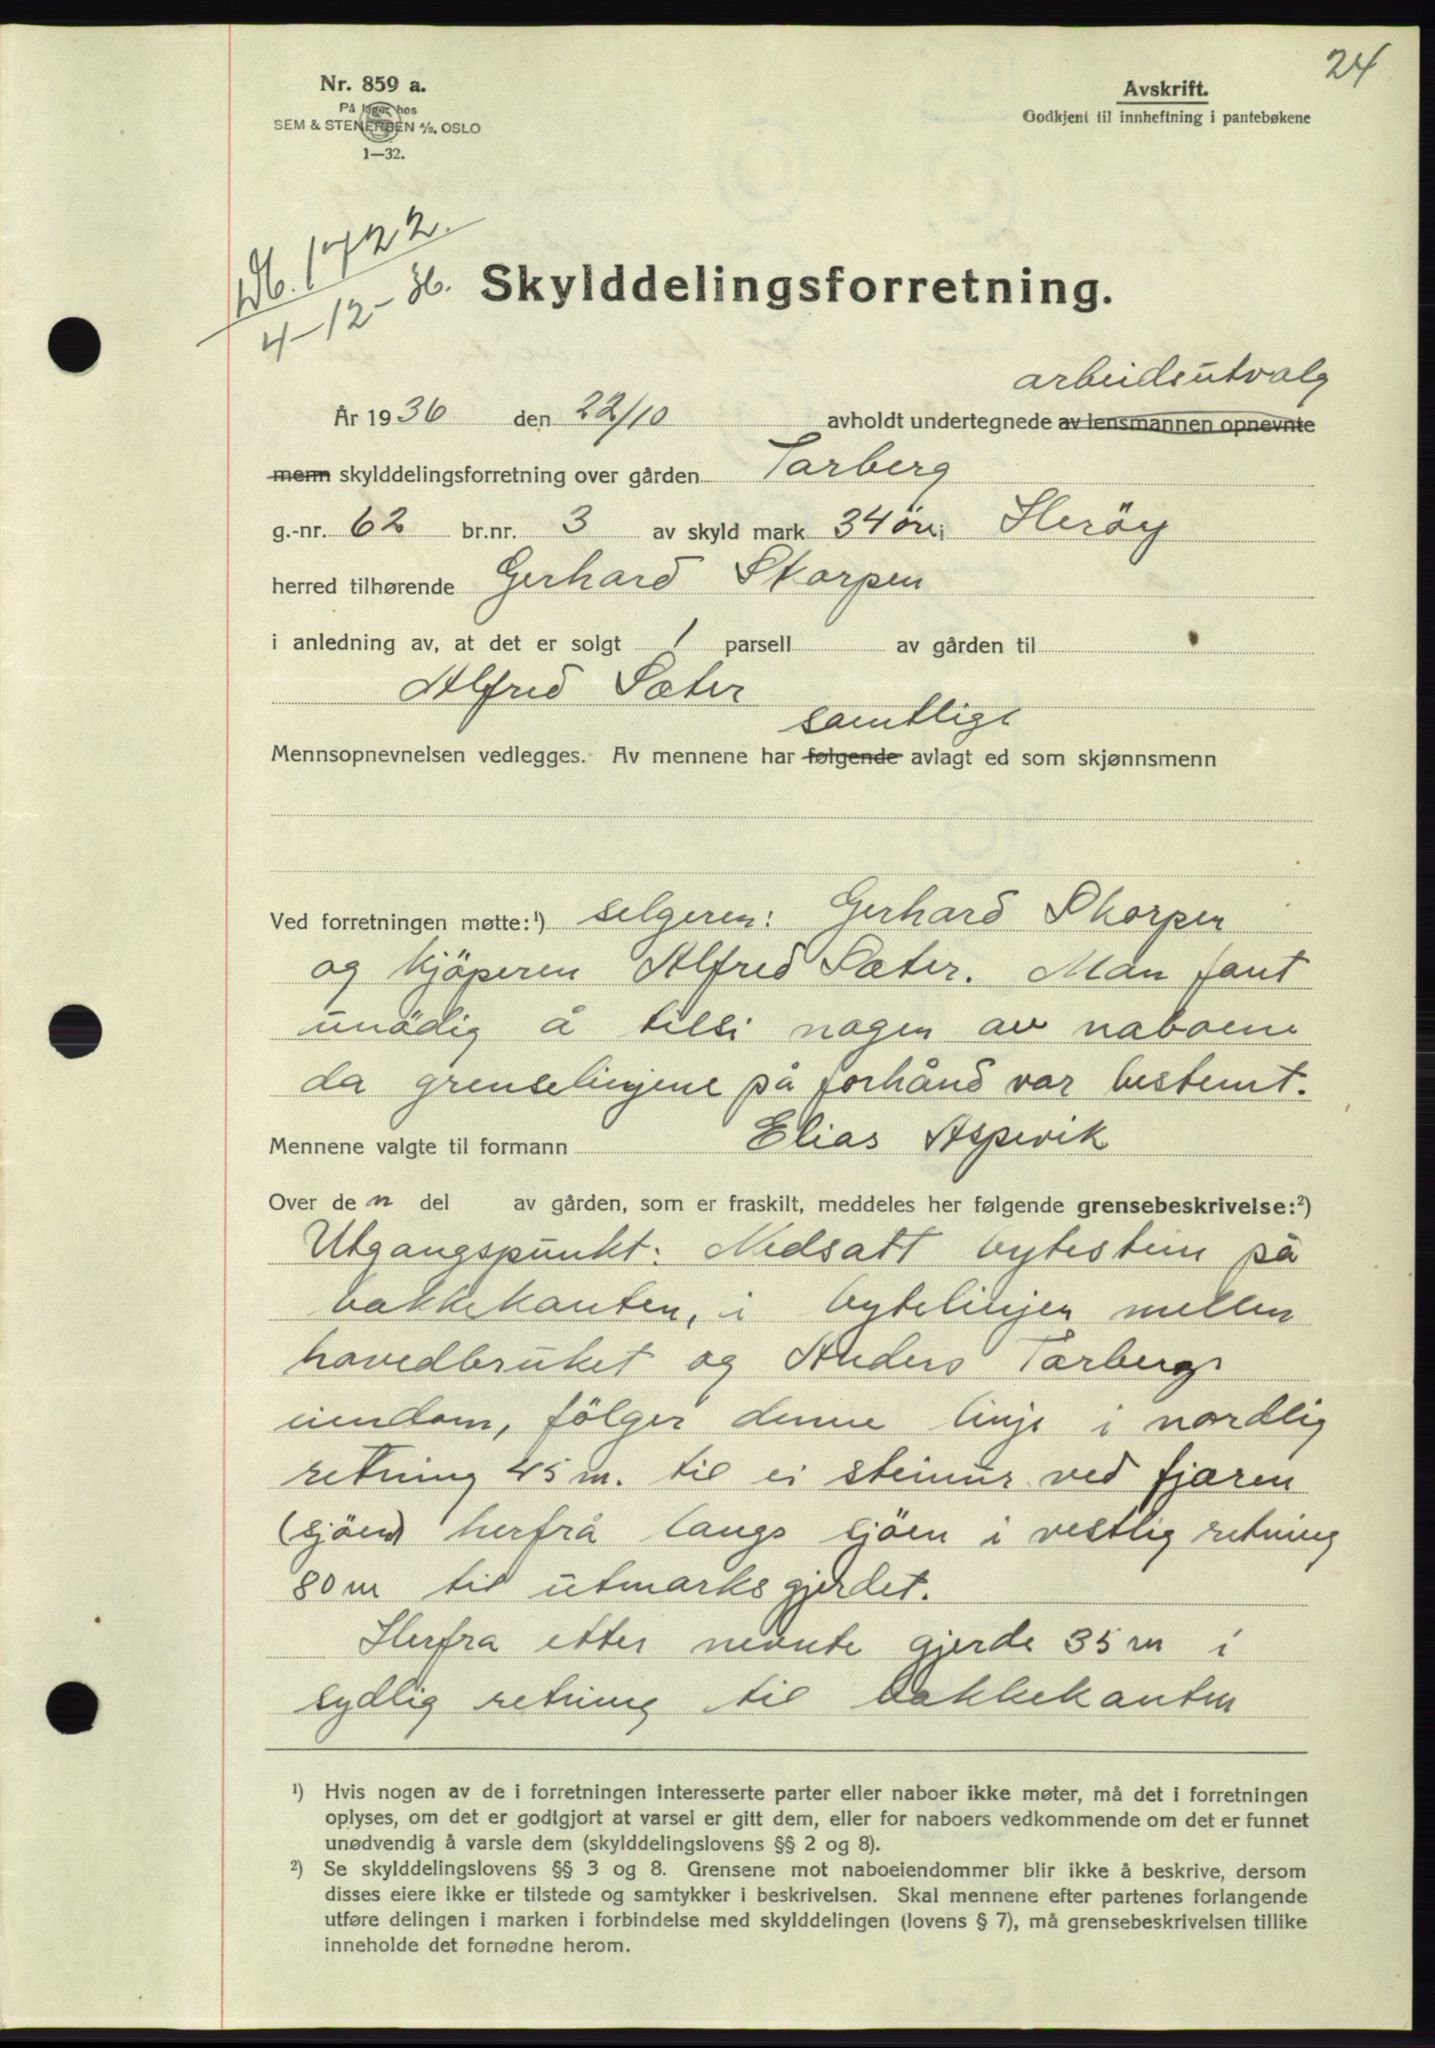 24
Nr. 859 a.
På lager hos
SEM & STENERSEN A/S, OSLO
1—32.
Avskrift.
Godkjent til innheftning i pantebøkene
Db. 1722.
4-12-36.
Skylddelingsforretning.
arbeidsutvalg
År 1936 den 22/10 avholdt undertegnede av lensmannen opnevnte
menn skylddelingsforretning over gården Tarberg
g.-nr. 62 br.nr. 3 av skyld mark 34 öre i Heröy
herred tilhørende Gerhard Skorpen
i anledning av, at det er solgt 1 parsell av gården til
Alfred Sæter
samtlige
Mennsopnevnelsen vedlegges. Av mennene har følgende avlagt ed som skjønnsmenn
Ved forretningen møtte:¹) selgeren: Gerhard Skorpen
og kjöperen Alfred Sæter. Man fant
unödig å tilsi nogen av naboene
da grenselinjene på forhånd var bestemt.
Mennene valgte til formann Elias Aspevik
Over de n del av gården, som er fraskilt, meddeles her følgende grensebeskrivelse:²)
Utgangspunkt: Nedsatt bytestein på
bakkekanten, i bytelinjen mellem
hovedbruket og Anders Tarbergs
eiendom, fölger denne linje i nordlig
retning 45 m. til ei steinur ved fjæren
(sjöen) herfrå langs sjöen i vestlig retning
80 m til utmarksgjerdet.
Herfra etter nevnte gjerde 35 m i
sydlig retning til bakkekanten
¹) Hvis nogen av de i forretningen interesserte parter eller naboer ikke møter, må det i forretningen
oplyses, om det er godtgjort at varsel er gitt dem, eller for naboers vedkommende om det er funnet
unødvendig å varsle dem (skylddelingslovens §§ 2 og 8).
²) Se skylddelingslovens §§ 3 og 8. Grensene mot naboeiendommer blir ikke å beskrive, dersom
disses eiere ikke er tilstede og samtykker i beskrivelsen. Skal mennene efter partenes forlangende
utføre delingen i marken i forbindelse med skylddelingen (lovens § 7), må grensebeskrivelsen tillike
inneholde det fornødne herom.